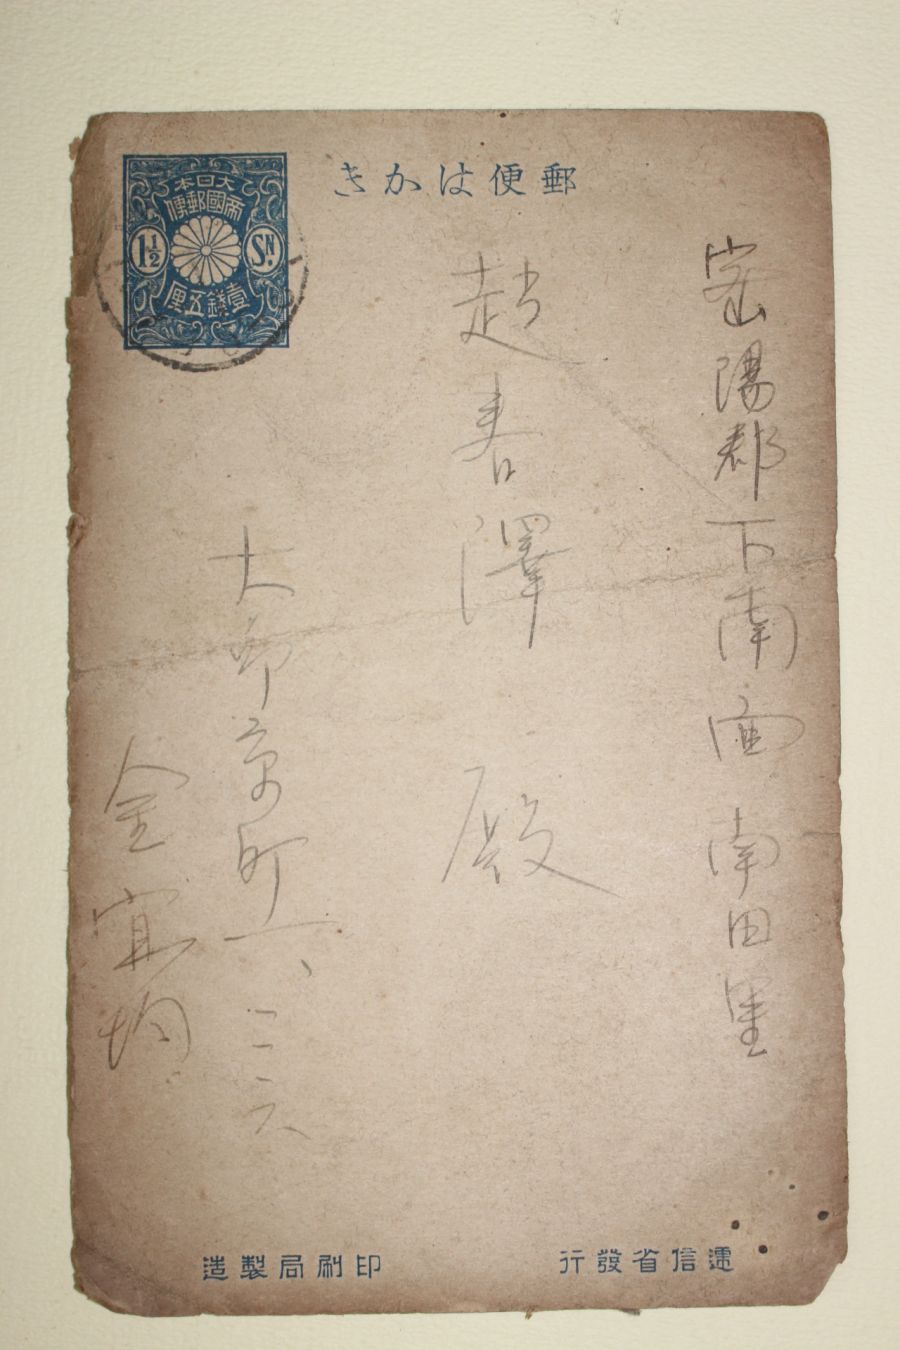 郵便はかき
大日本
帝國郵便
1½
SN.
壹錢五厘
密陽郡下南面南田里
趙春澤 殿
大邱京町一、二二六
金寅均
遞信省發行
印刷局製造